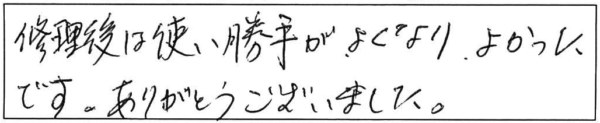 修理後は使い勝手がよくなり、よかった
です。ありがとうございました。